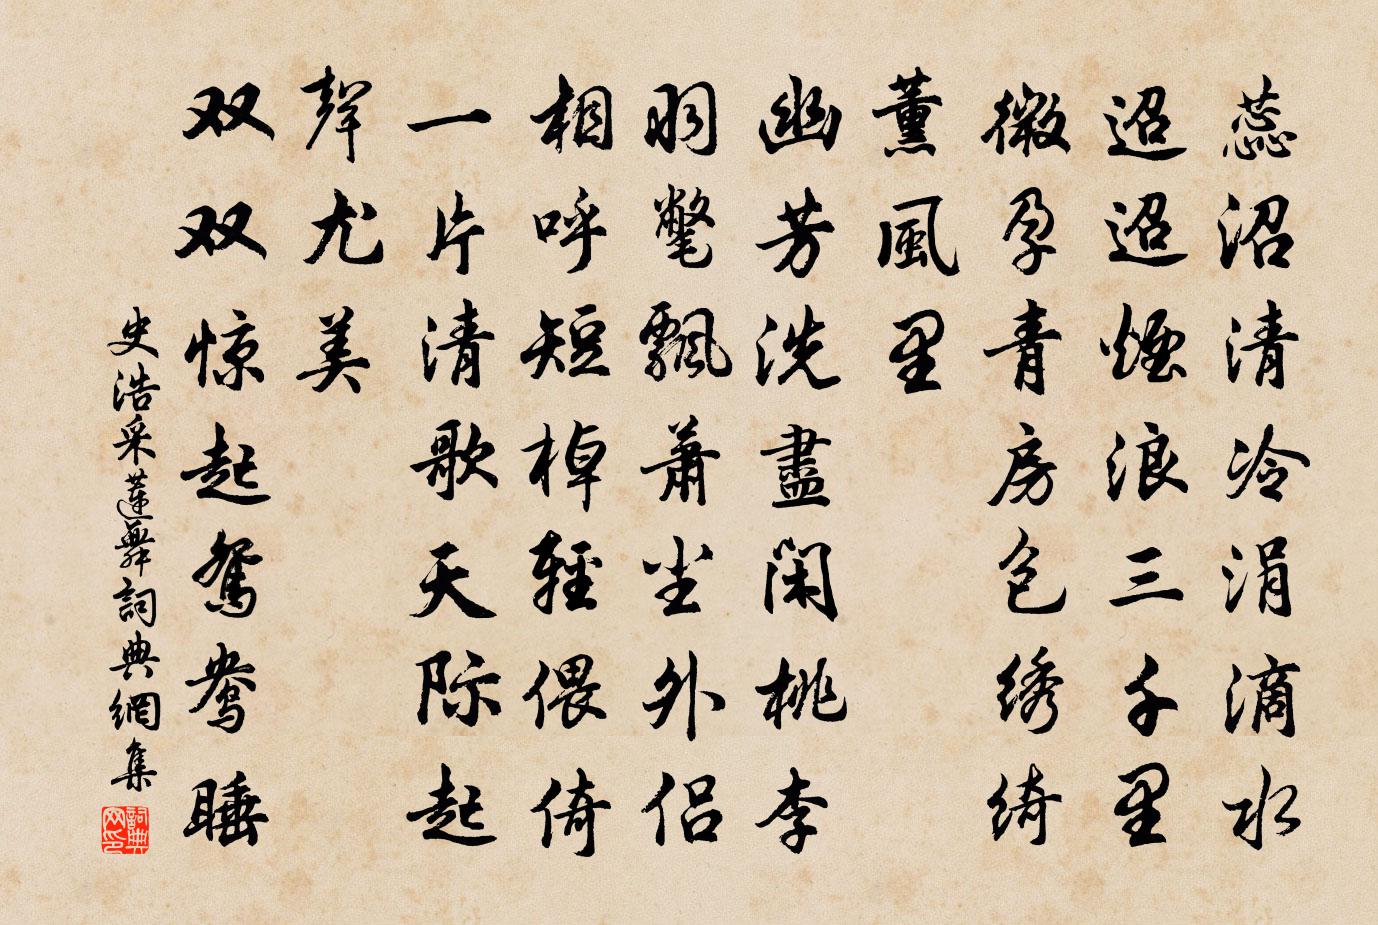 蕊沼清冷涓滴水
迢迢煙浪三千里
微孕青房包绣绮
薰風里
幽芳洗盡閑桃李
羽氅飄蕭尘外侣
相呼短棹輕偎倚
一片清歌天际起
聲尤美
双双惊起鴛鴦睡
史浩采蓮舞詞典網集
詞典网印